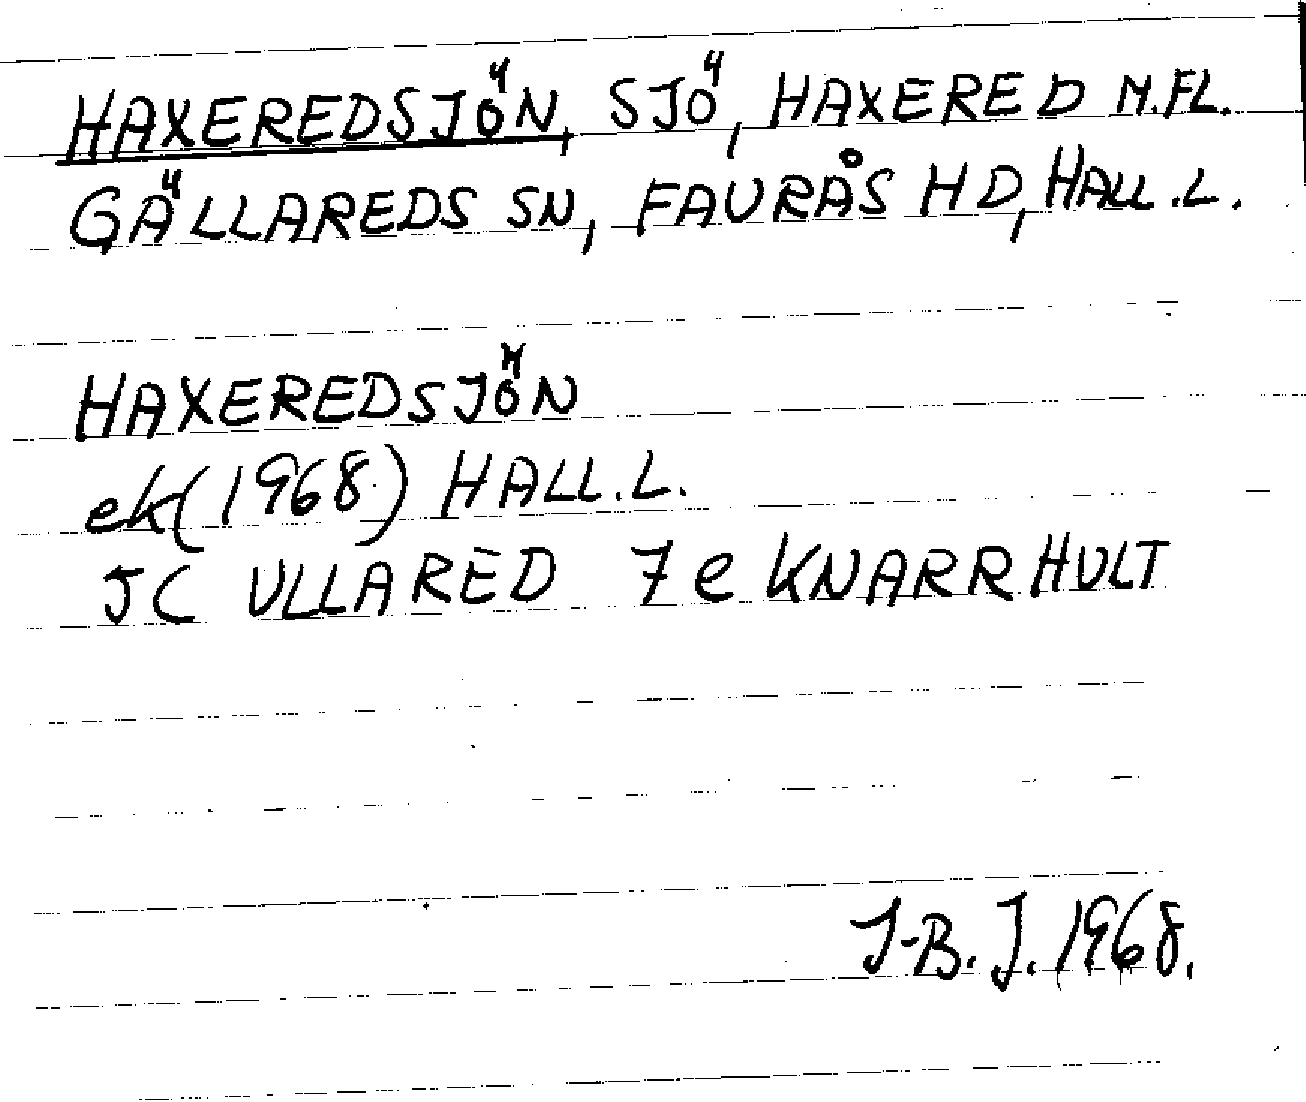 HAXEREDSJÖN, SJÖ, HAXERED M.FL.
GÄLLAREDS SN, FAURÅS HD, HALL.L.
HAXEREDSJÖN
ek(1968) HALL.L.
5C ULLARED 7e KNARRHULT
J-B.J. 1968.